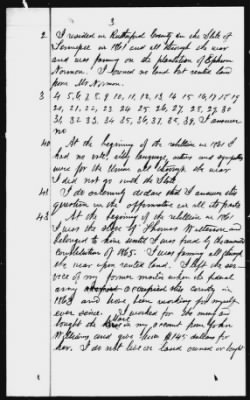 3
2 I resided in Rutherford County in the State of
Tennessee in 1861 and all through the war
and was farming on the plantation of Ephraim
Norman. I owned no land but rented land
from Mr Norman.
3 4, 5, 6, 7, 8, 9, 10, 11, 12, 13, 14 15 16, 17, 18, 19
20, 21, 22, 23 24 25 26, 27 28, 29, 30
31, 32 33, 34 35, 36, 37, 38, 39, I answer
no
40 At the beginning of the rebellion in 1861 I
had no vote, my language, actions and sympathies
were for the Union all through the war
I did not go with the State
41 I do solemnly declare that I answer this
question in the affirmative in all its parts
43 At the beginning of the rebellion in 1861
I was the slave of Thomas Watterson and
belonged to him until I was freed by the amended
constitution of 1865. I was farming all through
the war upon rented land. I left the ser-
vice of my former master when the federal
army occupied this county in
1863 and have been working for myself
ever since. I worked for the man and
bought the mare in my account from John
Williams and give him $145 dollars for
her. I do not live on land owned or bought